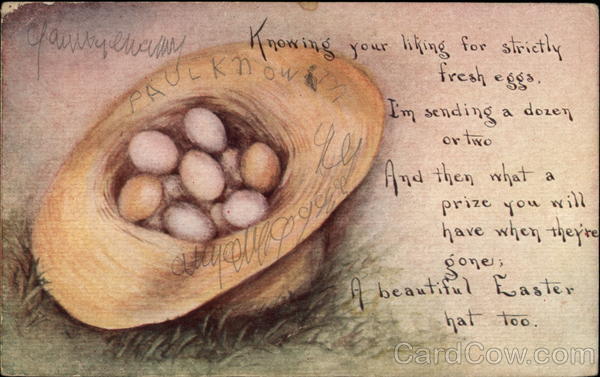 Knowing your liking for strictly
fresh eggs,
I'm sending a dozen
or two
And then what a
prize you will
have when they're
gone;
A beautiful Easter
hat too.
PAUL KNOW
CardCow.com